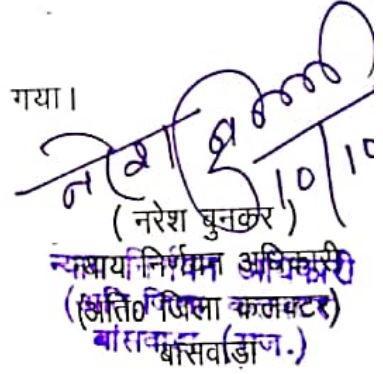 गया।
10/10
( नरेश बुनकर )
न्याय निर्णयन अधिकारी
(अति0 जिला कलक्टर)
बांसवाड़ा (राज.)
बांसवाड़ा